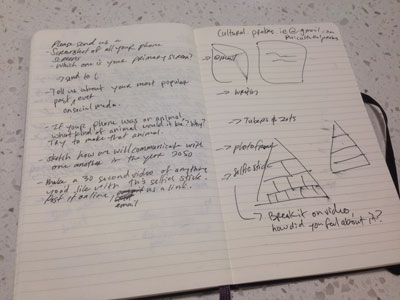 Please send us a
Screenshot of all your phone
screens
- Which one is your primary screen?
→ send to (
- Tell us about your most popular
post, ever
on social media.
- If your phone was an animal,
what kind of animal would it be? Why?
Try to make that animal.
- Sketch how we will communicate with
one another in the year 2050
- Make a 30 second video of anything
you'd like with this selfie stick.
Post it online / us a link.
email
Cultural probes ie @gmail.com
→ 
→ written
→ 
→ photoframe
→ Selfie stick
→ Break it on video,
how did you feel about it?